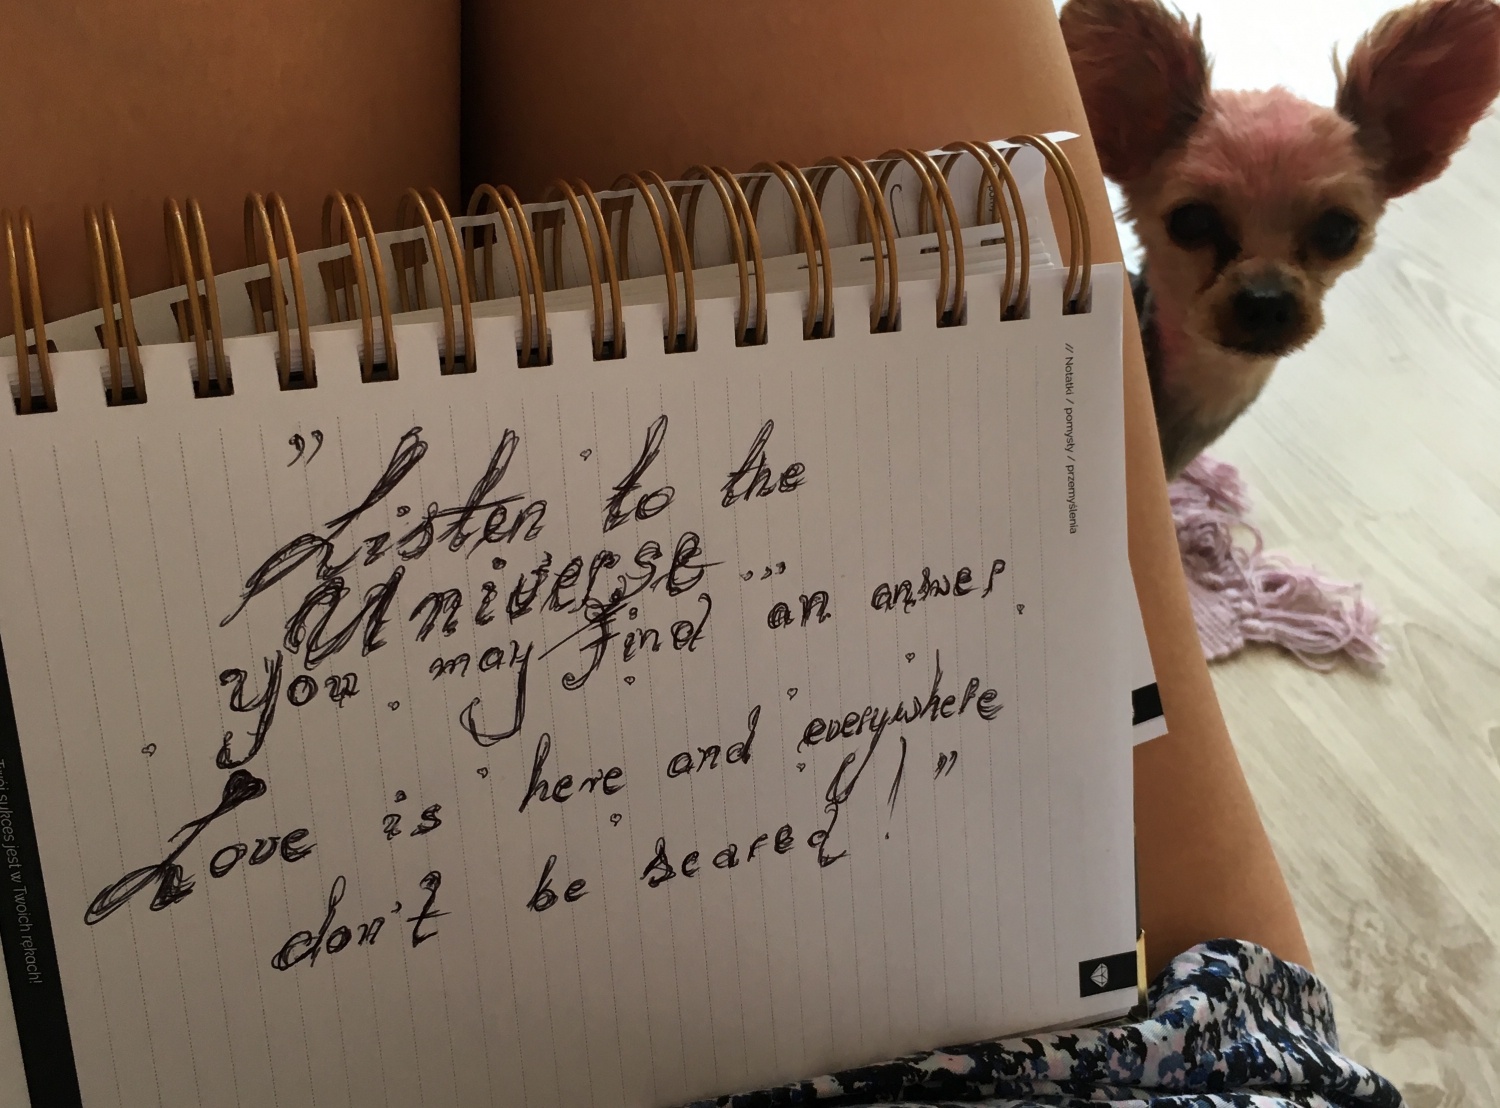 " Listen to the
Universe ...
you may find an answer.
Love is here and everywhere
don't be scared ! "
// Notatki / pomysły / przemyślenia
Twój sukces jest w Twoich rękach!